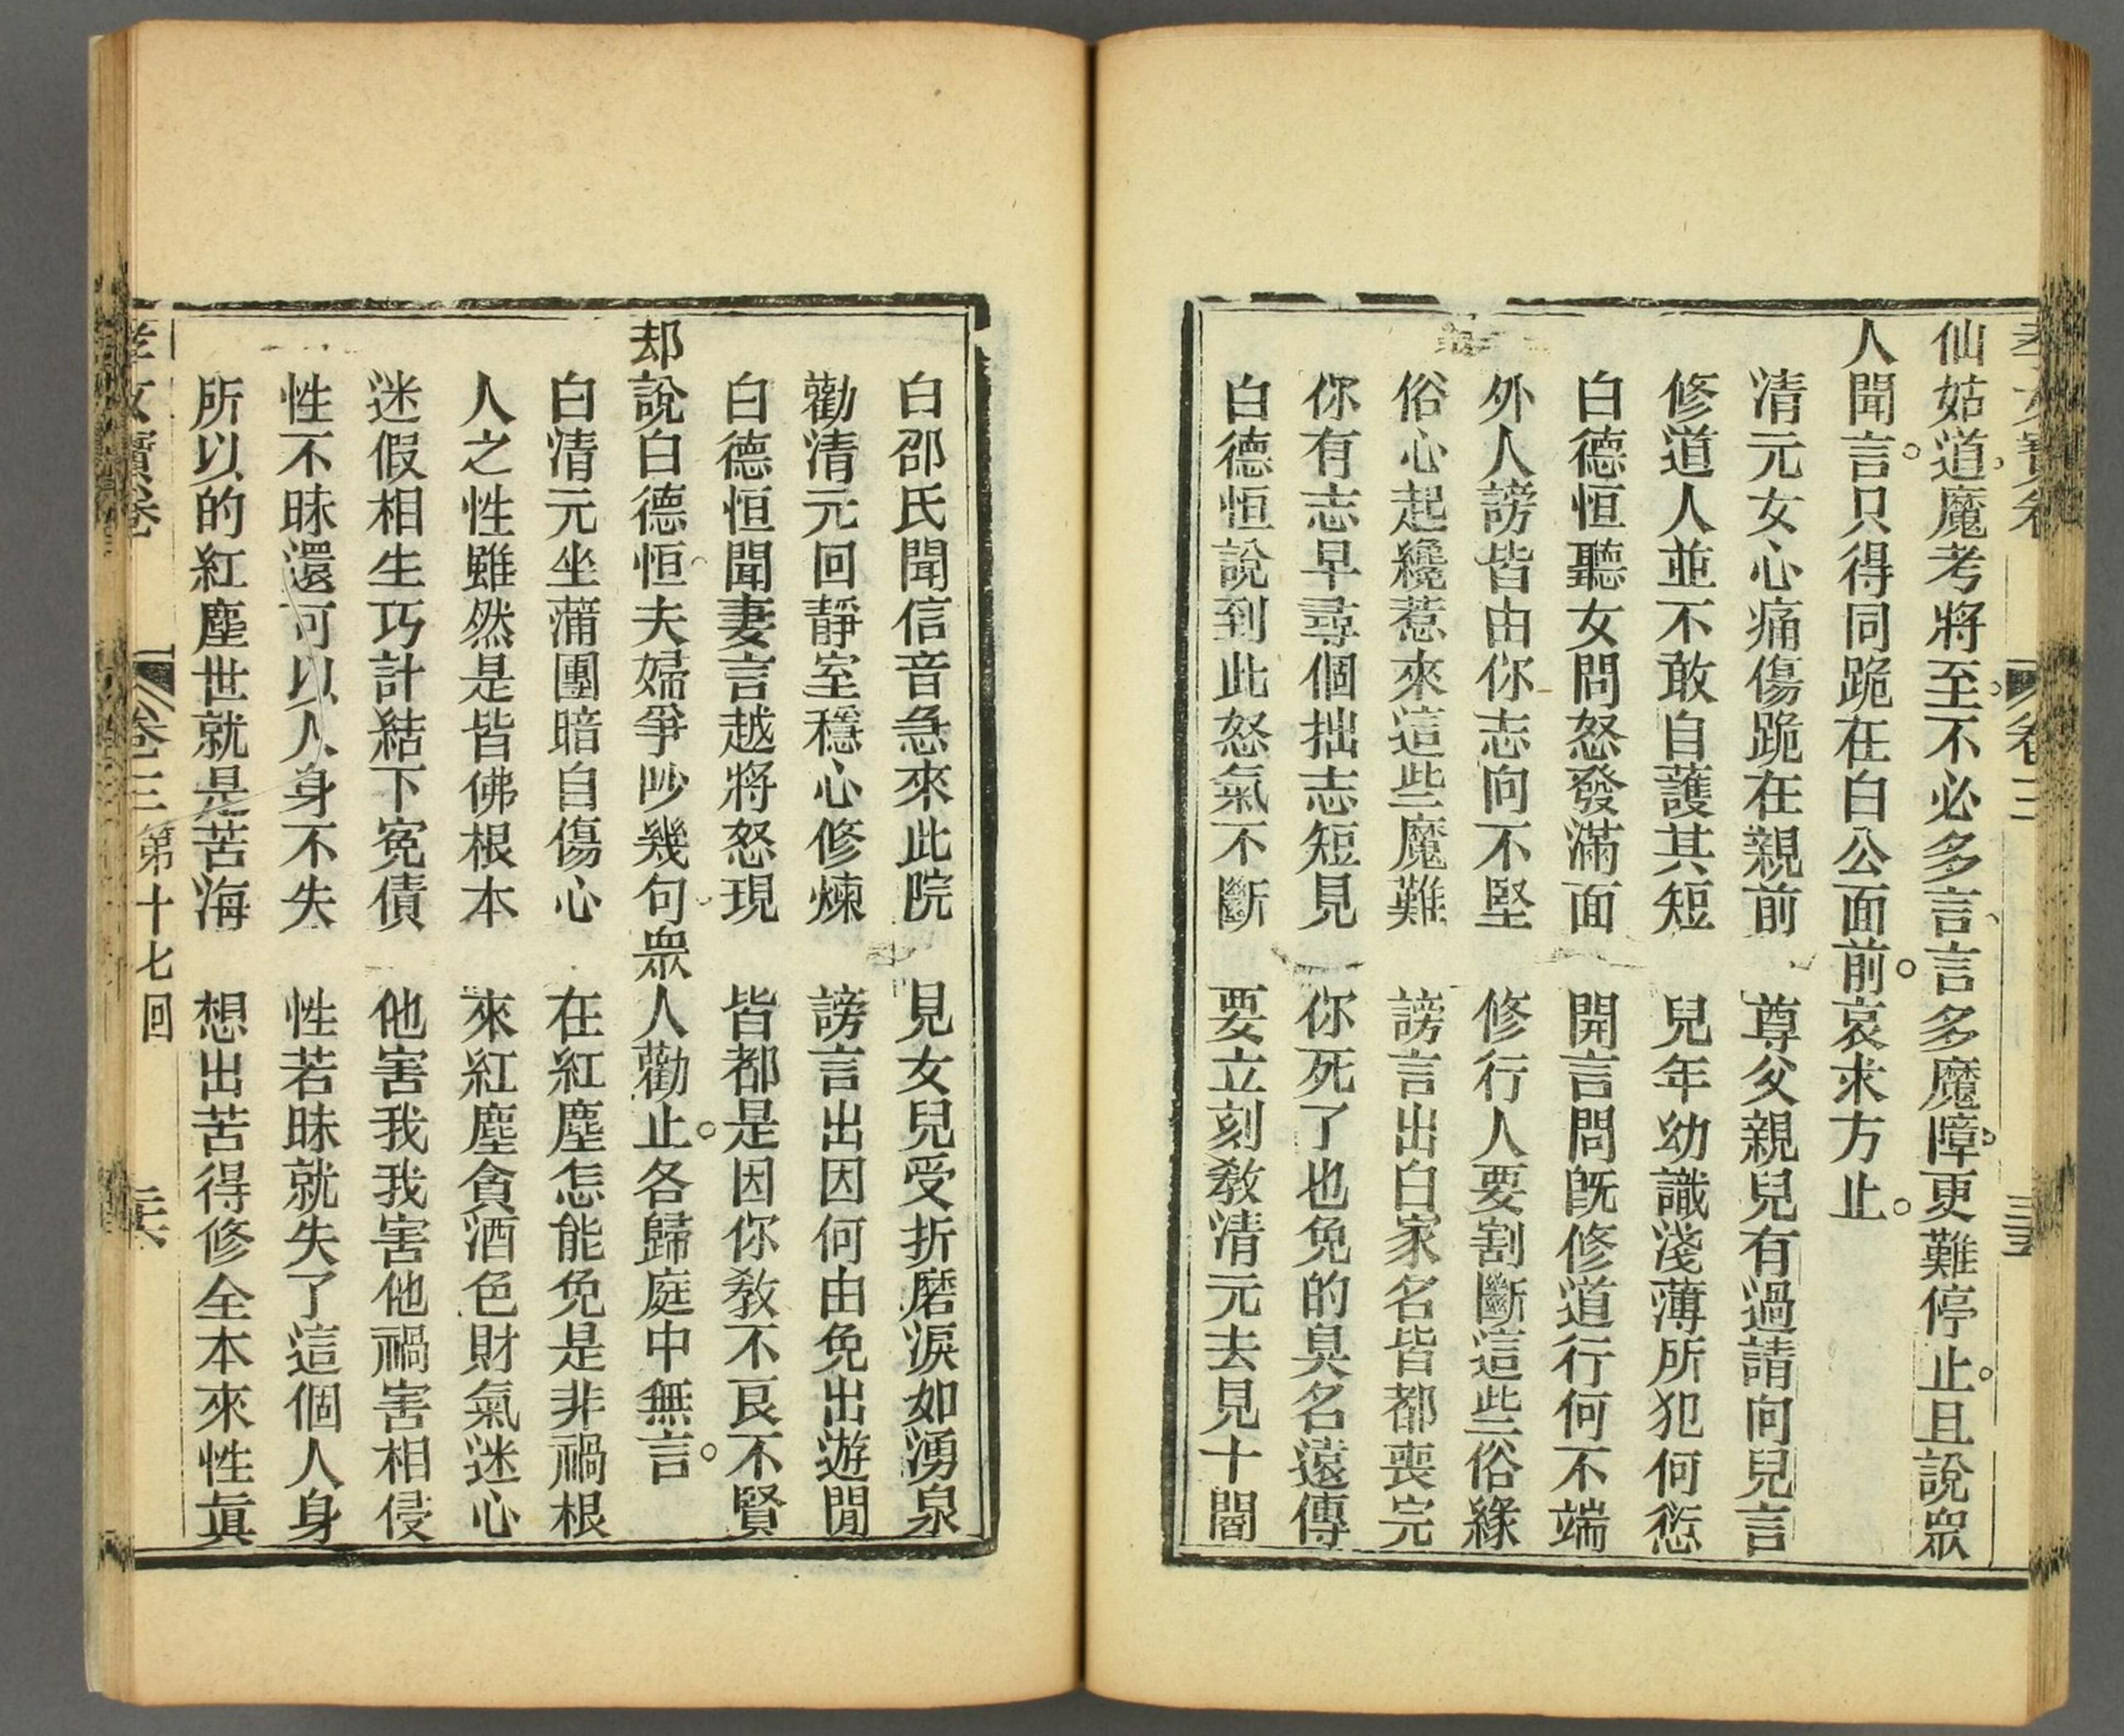 仙姑道魔考將至不必多言言多魔障更難停止且說眾
人聞言只得同跪在白公面前哀求方止
清元女心痛傷跪在親前 尊父親兒有過請向兒言
修道人並不敢自護其短 兒年幼識淺薄所犯何愆
白德恒聽女問怒發滿面 開言問旣修道行何不端
外人謗皆由你志向不堅 修行人要割斷這些俗緣
俗心起纔惹來這些魔難 謗言出白家名皆都喪完
你有志早尋個拙志短見 你死了也免的臭名遠傳
白德恒說到此怒氣不斷 要立刻教清元去見十閻
白邵氏聞信音急來此院 見女兒受折磨淚如湧泉
勸清元回靜室穩心修煉 謗言出因何由免出遊閒
白德恒聞妻言越將怒現 皆都是因你教不良不賢
却說白德恒夫婦爭吵幾句眾人勸止各歸庭中無言
白清元坐蒲團暗自傷心 在紅塵怎能免是非禍根
人之性雖然是皆佛根本 來紅塵貪酒色財氣迷心
迷假相生巧計結下冤債 他害我我害他禍害相侵
性不昧還可以人身不失 性若昧就失了這個人身
所以的紅塵世就是苦海 想出苦得修全本來性眞
女寶卷 卷三 第十七回